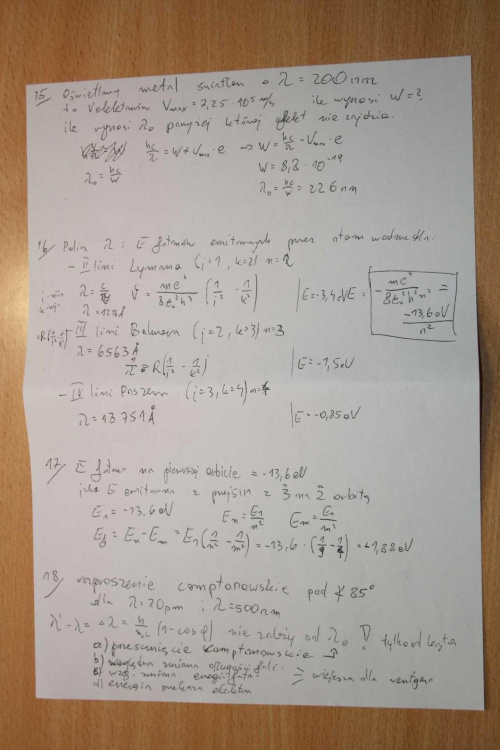 15 Oświetlamy metal światłem o λ = 200nm
to Velektronów Vmax = 7,25 · 10⁵ m/s ile wynosi W = ?
ile wynosi λ₀ powyżej której efekt nie zajdzie.
hc/λ = W + Vmax · e → W = hc/λ - Vmax · e
λ₀ = hc/W
W = 8,8 · 10⁻¹⁹
λ₀ = hc/W = 226 nm
16/ Policz λ i E fotonów emitowanych przez atom wodoru dla:
- II lini Lymana (i=1, k=2) n=2
λ = c/ϑ ϑ = me⁴/8ε₀²h³ (1/i² - 1/k²) | E = -3,4eV
E = - me⁴/8ε₀²h²n² = -13,6eV/n²
- III lini Balmera (i=2, k=3) n=3
λ = 6563Å
1/λ = R(1/i² - 1/k²) | E = -1,5eV
- IV lini Paszena (i=3, k=4) n=4
λ = 18751Å | E = -0,85eV
17/ E fotonu na pierwszej orbicie = -13,6eV
jaka E emitowana z przejścia z 3 na 2 orbitę
E₁ = -13,6eV Eₙ = E₁/n² Eₘ = E₁/m²
Ef = Eₙ - Eₘ = E₁(1/n² - 1/m²) = -13,6 · (1/9 - 1/4) = +1,88eV
18/ rozproszenie comptonowskie pod ∢ 85°
dla λ = 20pm i λ = 500nm
λ' - λ = Δλ = (1 - cosφ) nie zależy od λ₀ ! tylko od kąta
a) przesunięcie komptonowskie
b) względna zmiana długości fali
c) wzg. zmiana energii fot.
większa dla rentgena
d) energia elektron